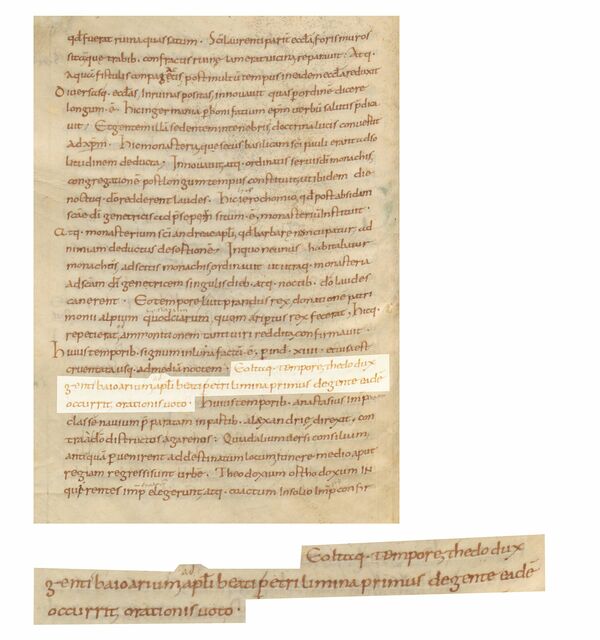 qd fuerat ruina quassatum · Sci laurenti parit eccla foris muros
sitaque trabib · confractis ruine lamerat vicina reparavit · Atq ·
aqua fistulis conpagectis post multū tempus in eadem eccla reduxit
Diversasq · ecclas in ruina positas innovavit quas p ordine dicere
longum ē · Hic in germania p bonifatium epm verbū salutis p̄dica
vit · Et gentem illā sedentem in tenebris doctrina lucis convertit
ad xpm · Hic monasteria que secus basilicam sci pauli erant ad so
litudinem deducta · Innovavit atq · ordinatis servis dī monachis
congregationē post longum tempus constituit ut ibidem die
noctuq · dō redderent laudes · Hic gerochomio qd post absidam
scae dī genetricis ad p̄sepem situm ē monasteriū instituit ·
Atq · monasterium sci andreae apli qd barbare nuncupatur ad
nimiam deductus desertione · In quo ne unus habitabatur
monachus adscitis monachis ordinavit ut utraq monasteria
ad scam dī genetricem singulis dieb · atq · noctib · dō laudes
canerent · Eo tempore liutprandus rex donatione patri
monii alpium quodciarum quem aripertus rex fecerat · Hicq ·
repetierat ammonitionem tanti viri reddita confirmavit ·
Huius temporib · signum in luna factū ē · p ind · XIIII · et visa est
cruentata usq · ad mediā noctem · Eo ituq · tempore thedo dux
genti baioarium ad apli beati petri limina primus de gente eadē
occurrit orationis voto · Huius temporib · anastasius imp
classe navium p̄paratam in partib · alaxandrie direxit con
tra a dō districtos agarenos · Qui dalium versi consilium
antiquā pvenirent ad destinatum locum itinere medio aput
regiam regressi sunt urbe · Theodoxum orthodoxum IN
querentes imp elegerunt atq · coactum in solio imp confir
Eo ituq · tempore thedo dux
genti baioarium ad apli beati petri limina primus de gente eadē
occurrit orationis voto ·